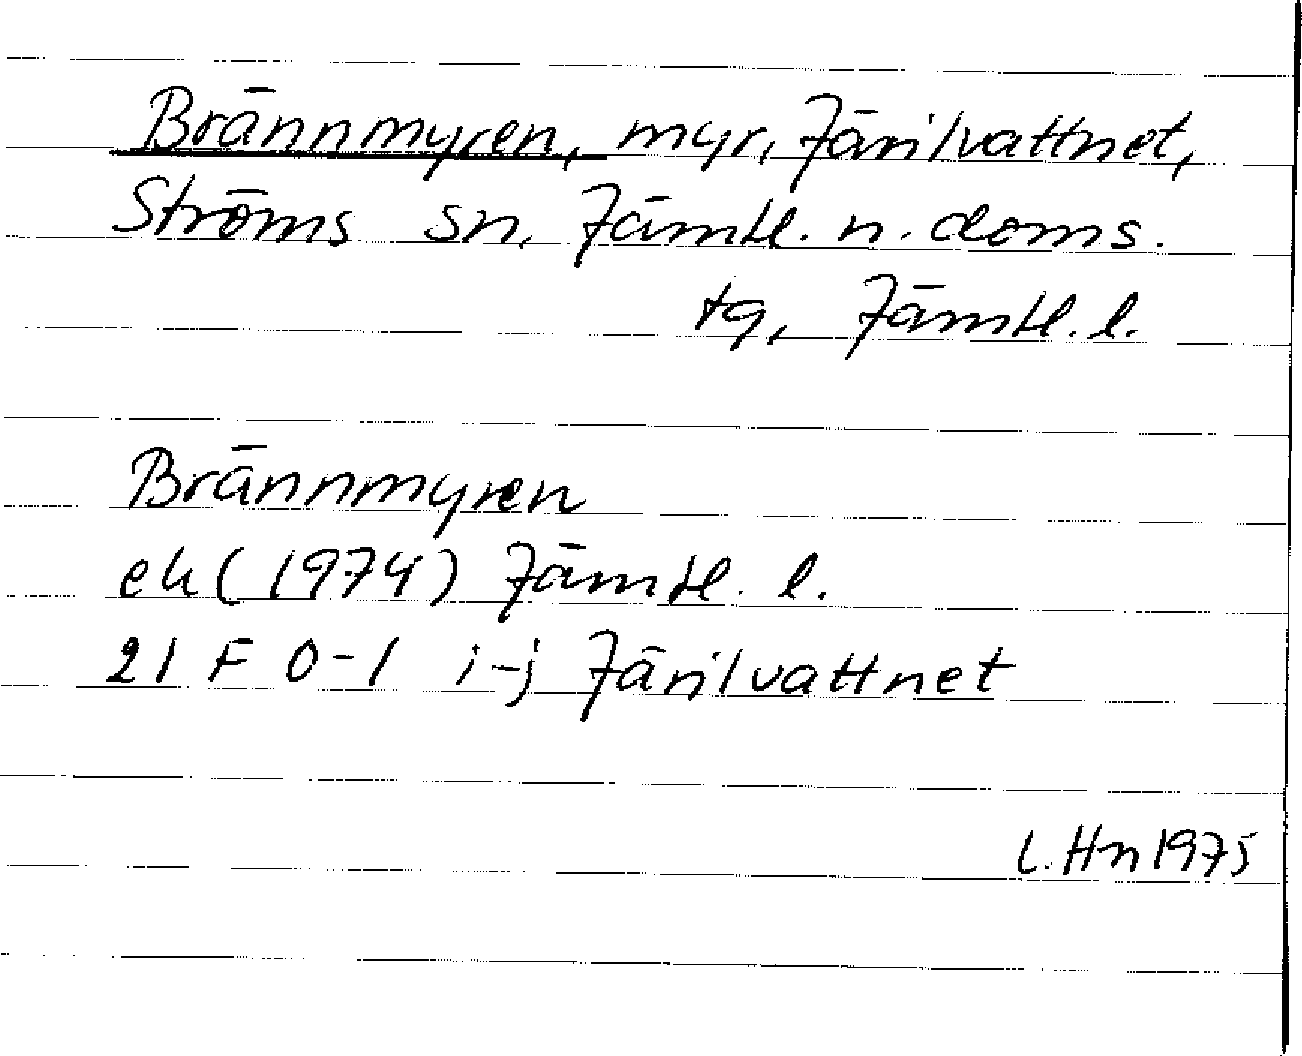 Brännmyren, myr, Järilvattnet,
Ströms sn, Jämtl. n. doms.
tg, Jämtl. l.
Brännmyren
ek (1974) Jämtl. l.
21 F 0-1 i-j Järilvattnet
L. Hn 1975